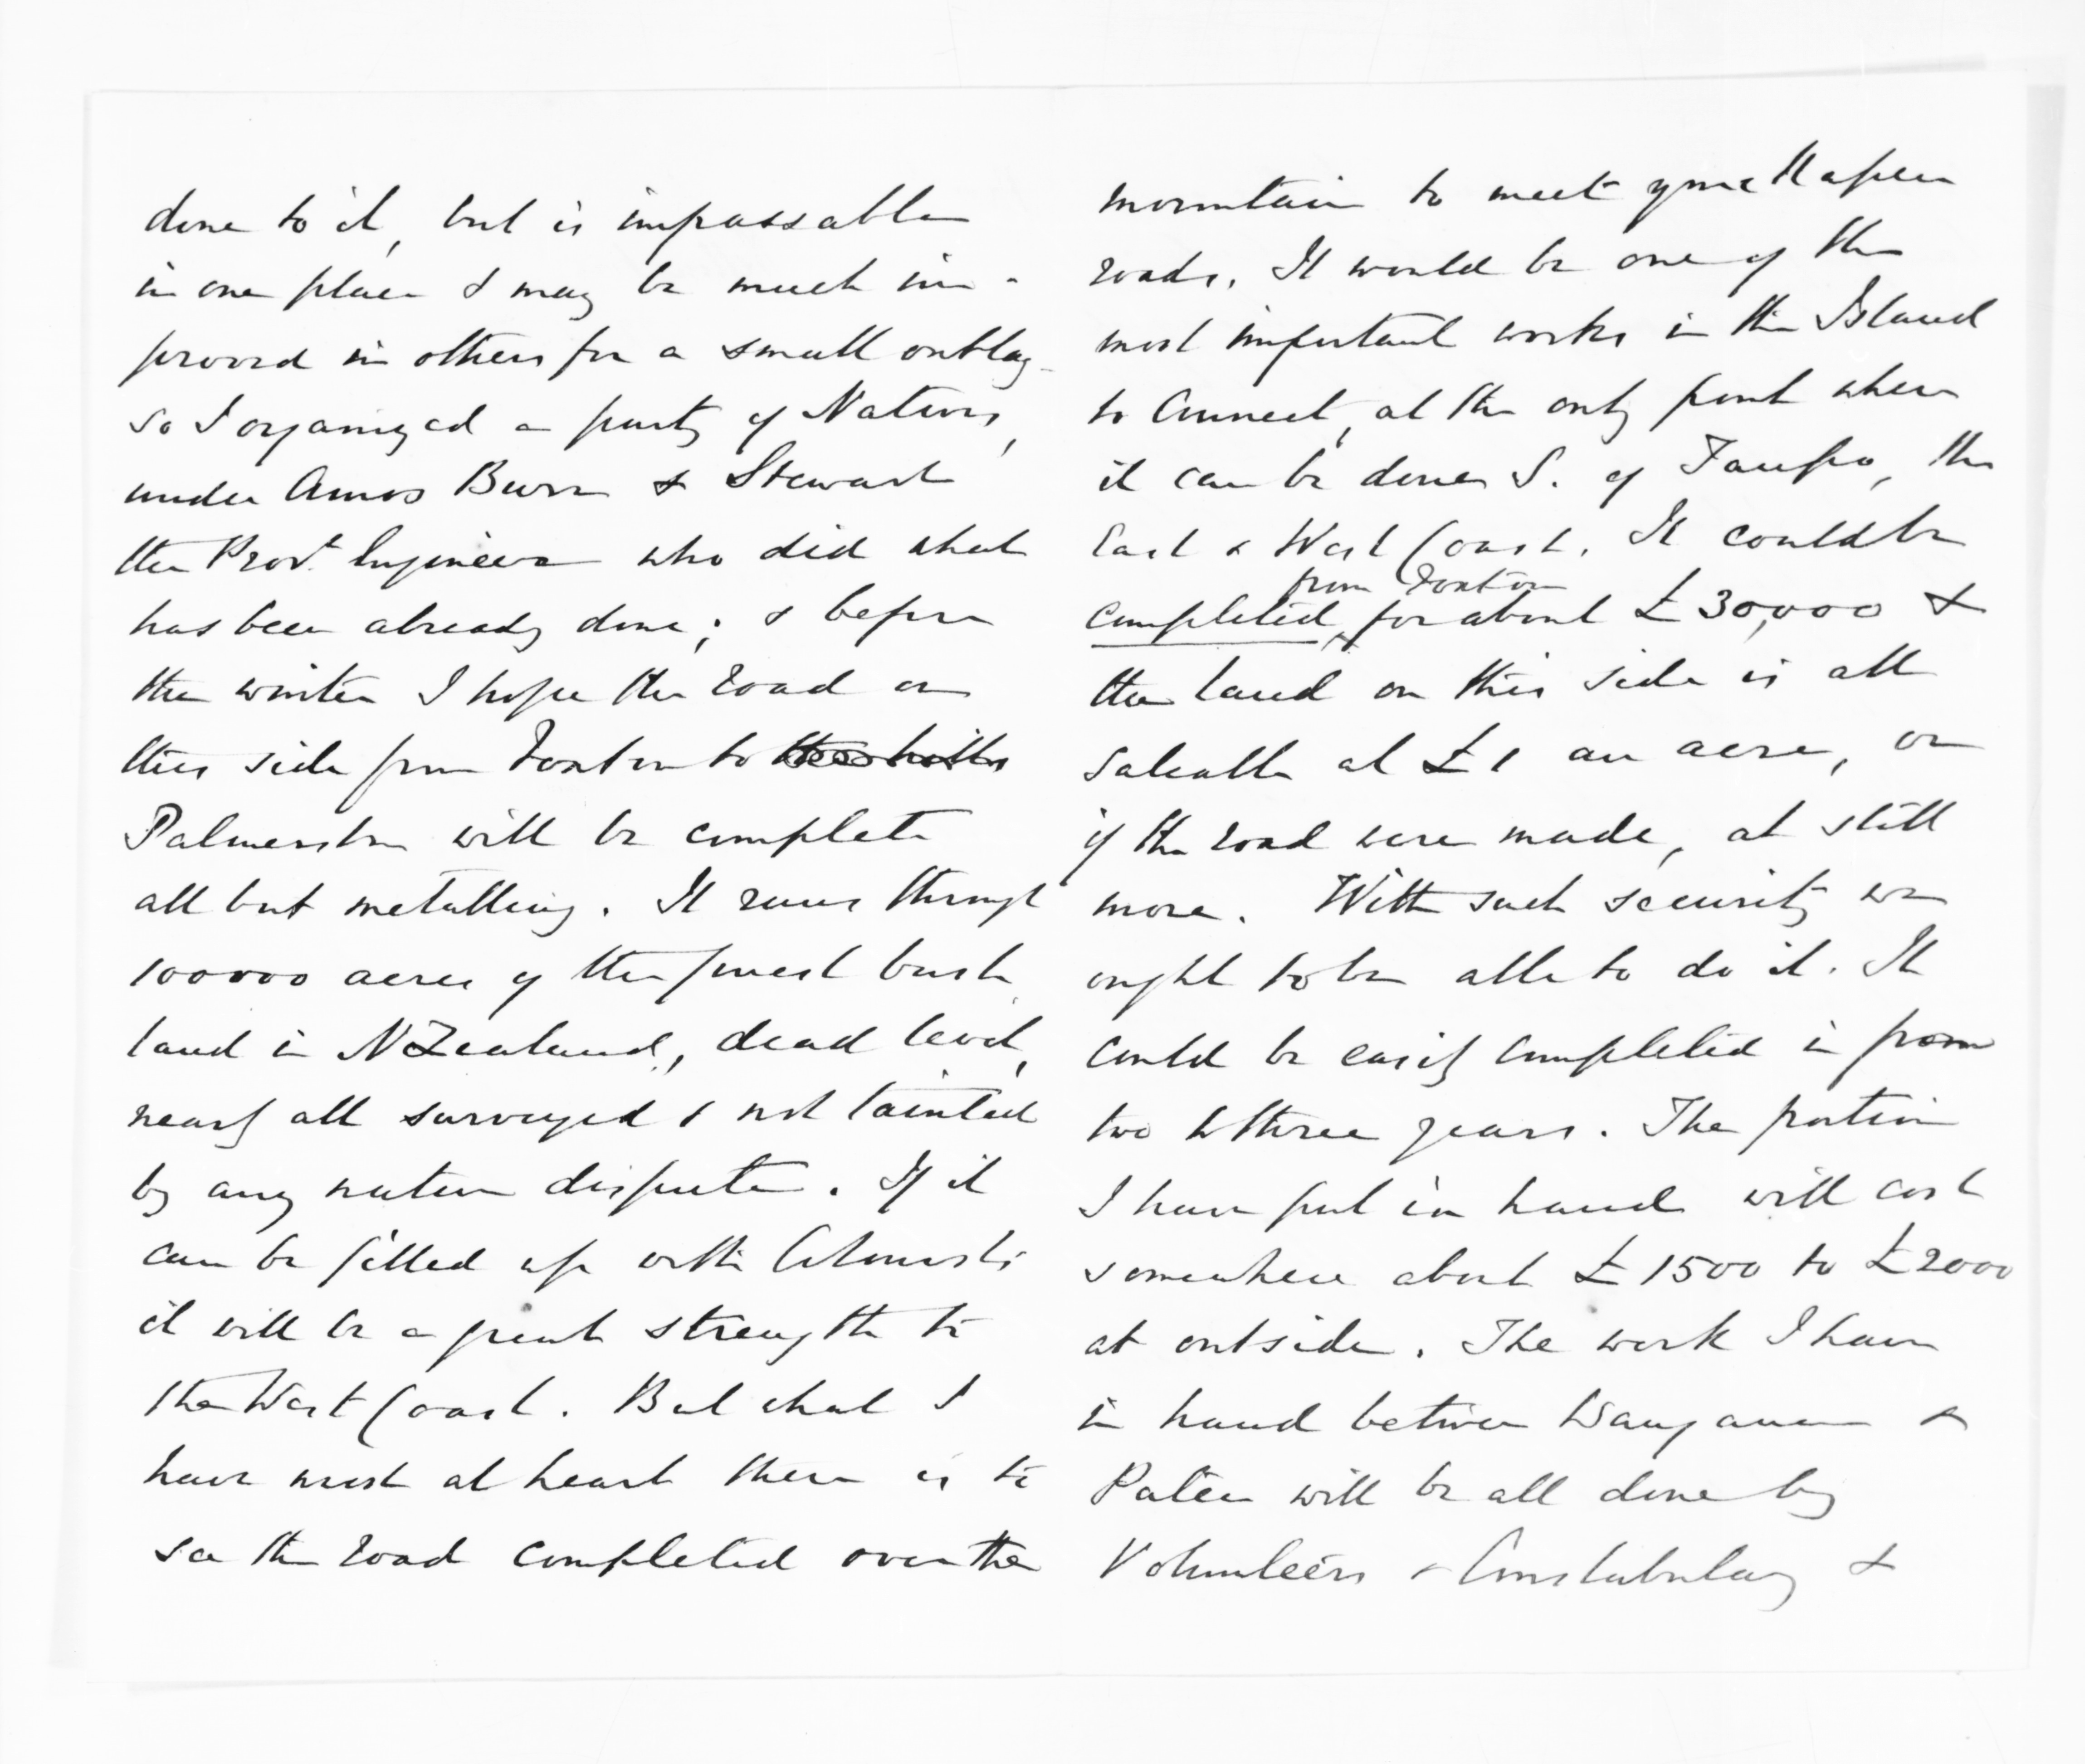 done to it, but is impassable
in one place & may be much im-
proved in others for a small outlay -
so I organized a party of Natives,
under Amos Burr & Stewart
the Prov.l Engineer who did what
has been already done; & before
the winter I hope the road on
this side from Foxton to the hills
Palmerston will be complete
all but metalling. It runs through
100000 acres of the finest bush
land in N Zealand, dead level,
nearly all surveyed & not tainted
by any native dispute. If it
can be filled up with Colonists
it will be a great strength to
the West Coast. But what I
have most at heart there is to
see the road completed over the
mountain to meet your Napier
roads. It would be one of the
most important works in this Island
to connect, at the only point where
it can be done S. of Taupo, the
East & West Coast. It could be
from Foxton
completed, for about £30,000 &
the land on this side is all
saleable at £1 an acre, or
if the road were made, at still
more. With such security we
ought to be able to do it. It
could be easily completed in from
two to three years. The portion
I have put in hand will cost
somewhere about £1500 to £2000
at outside. The work I have
in hand between Wanganui &
Patea will be all done by
Volunteers & Constabulary &